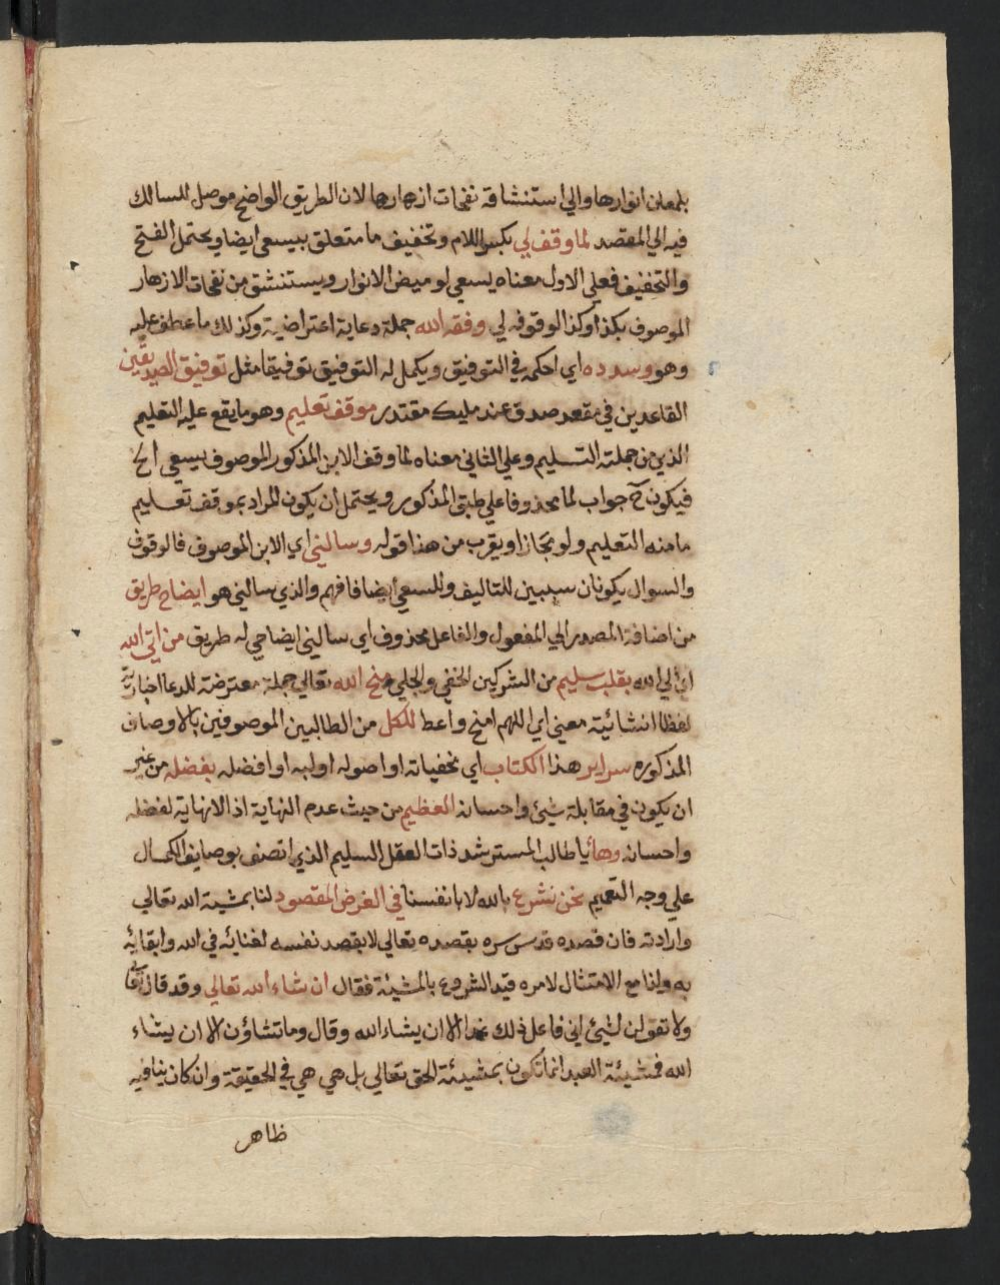 بلمعان انوارها والي استنشاقة نفحات ازهارها لان الطريق الواضح موصل للسالك
فيه الي المقصد لما وقف لي بكسر اللام وتخفيف ما متعلق بيسعي ايضا ويحتمل الفتح
والتخفيف فعلي الاول معناه يسعي لوميض الانوار ويستنشق من نفحات الازهار
الموصوف بكذا وكذا لوقوفه لي وفقه الله جملة دعاية اعتراضية وكذلك ما عطف عليه
وهو وسدده اي احكمه في التوفيق ويكمل له التوفيق توفيقا مثل توفيق الصديقين
القاعدين في مقعد صدق عند مليك مقتدر موقف تعليم وهو ما يقع عليه التعليم
الذي من جملته التسليم وعلي الثاني معناه لما وقف الابن المذكور الموصوف بيسعي الخ
فيكون ح جواب لما محذوفا علي طبق المذكور ويحتمل ان يكون المراد بموقف تعليم
ما منه التعليم ولو مجازا ويقرب من هذا قوله وسالني اي الابن الموصوف فالوقوف
والسوال يكونان سببين للتاليف وللسعي ايضا فافهم والذي سالني هو ايضاح طريق
من اضافة المصدر الي المفعول والفاعل محذوف اي سالني ايضاحي له طريق من اتي الله
اي الي الله بقلب سليم من الشركين الخفي والجلي منح الله تعالي جملة معترضة للدعا اخبارية
لفظا انشائية معني اي اللهم امنح واعط للكل من الطالبين الموصوفين بالاوصاف
المذكوره سراير هذا الكتاب اي مخفياته او اصوله او لبه او افضله بفضله من غير
ان يكون في مقابلة شيئ واحسانه العظيم من حيث عدم النهاية اذ لا نهاية لفضله
واحسانه وها يا طالب المسترشد ذات العقل السليم الذي اتصف بوصايف الكمال
علي وجه التعميم نحن نشرع بالله لا بانفسنا في الغرض المقصود لنا بمشيئة الله تعالي
وارادته فان قصده قدس سره بقصده تعالي لا بقصد نفسه لفنائه في الله وابقائه
به ولنا مع الامتثال لامره قيد الشروع بالمشيئة فقال ان شاء الله تعالي وقد قال تعالي
ولا تقولن لشيئ اني فاعل ذلك غدا الا ان يشاء الله وقال وما تشاؤن الا ان يشاء
الله فمشيئة العبد انما تكون بمشيئة الحق تعالي بل هي هي في الحقيقة وان كان ينافيه
ظاهر